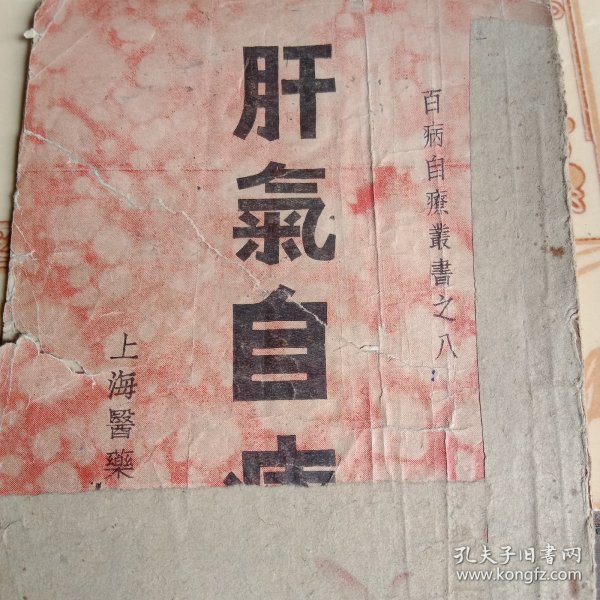 百病自療叢書之八
肝氣自
上海醫藥
孔夫子旧书网
www.kongfz.com